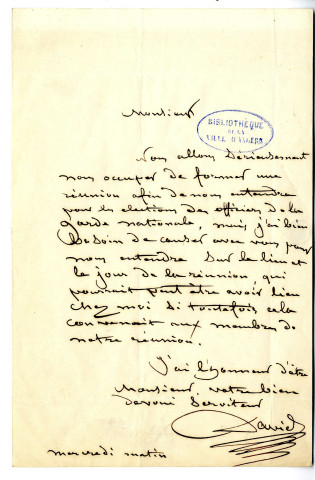 Monsieur
BIBLIOTHÈQUE
DE LA
VILLE D'ANGERS
Nous allons sérieusement
nous occuper de former une
réunion afin de nous entendre
pour les elections des officiers de la
garde nationale, mais j'ai bien
besoin de causer avec vous pour
nous entendre sur le lieu et
le jour de la réunion qui
pourrait peut être avoir lieu
chez moi si toutefois cela
convenait aux membres de
notre réunion.
J'ai l'honneur d'être
Monsieur votre bien
devoué Serviteur
David
mercredi matin